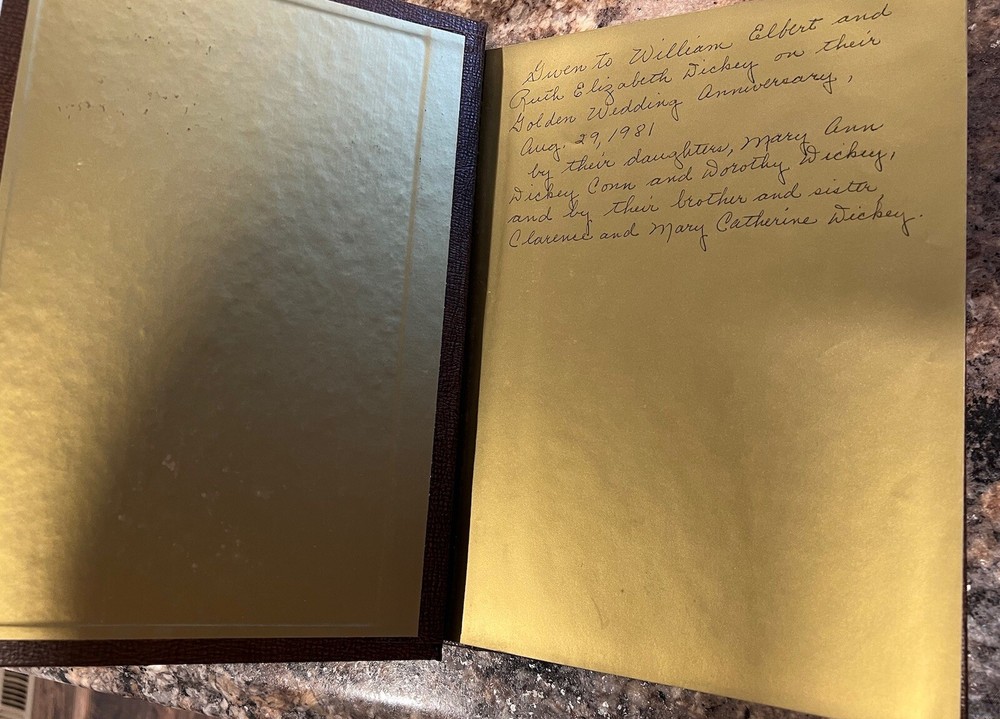 Given to William Elbert and
Ruth Elizabeth Dickey on their
Golden Wedding Anniversary,
Aug. 29, 1981
by their daughters, Mary Ann
Dickey Conn and Dorothy Dickey,
and by their brother and sister,
Clarence and Mary Catherine Dickey.